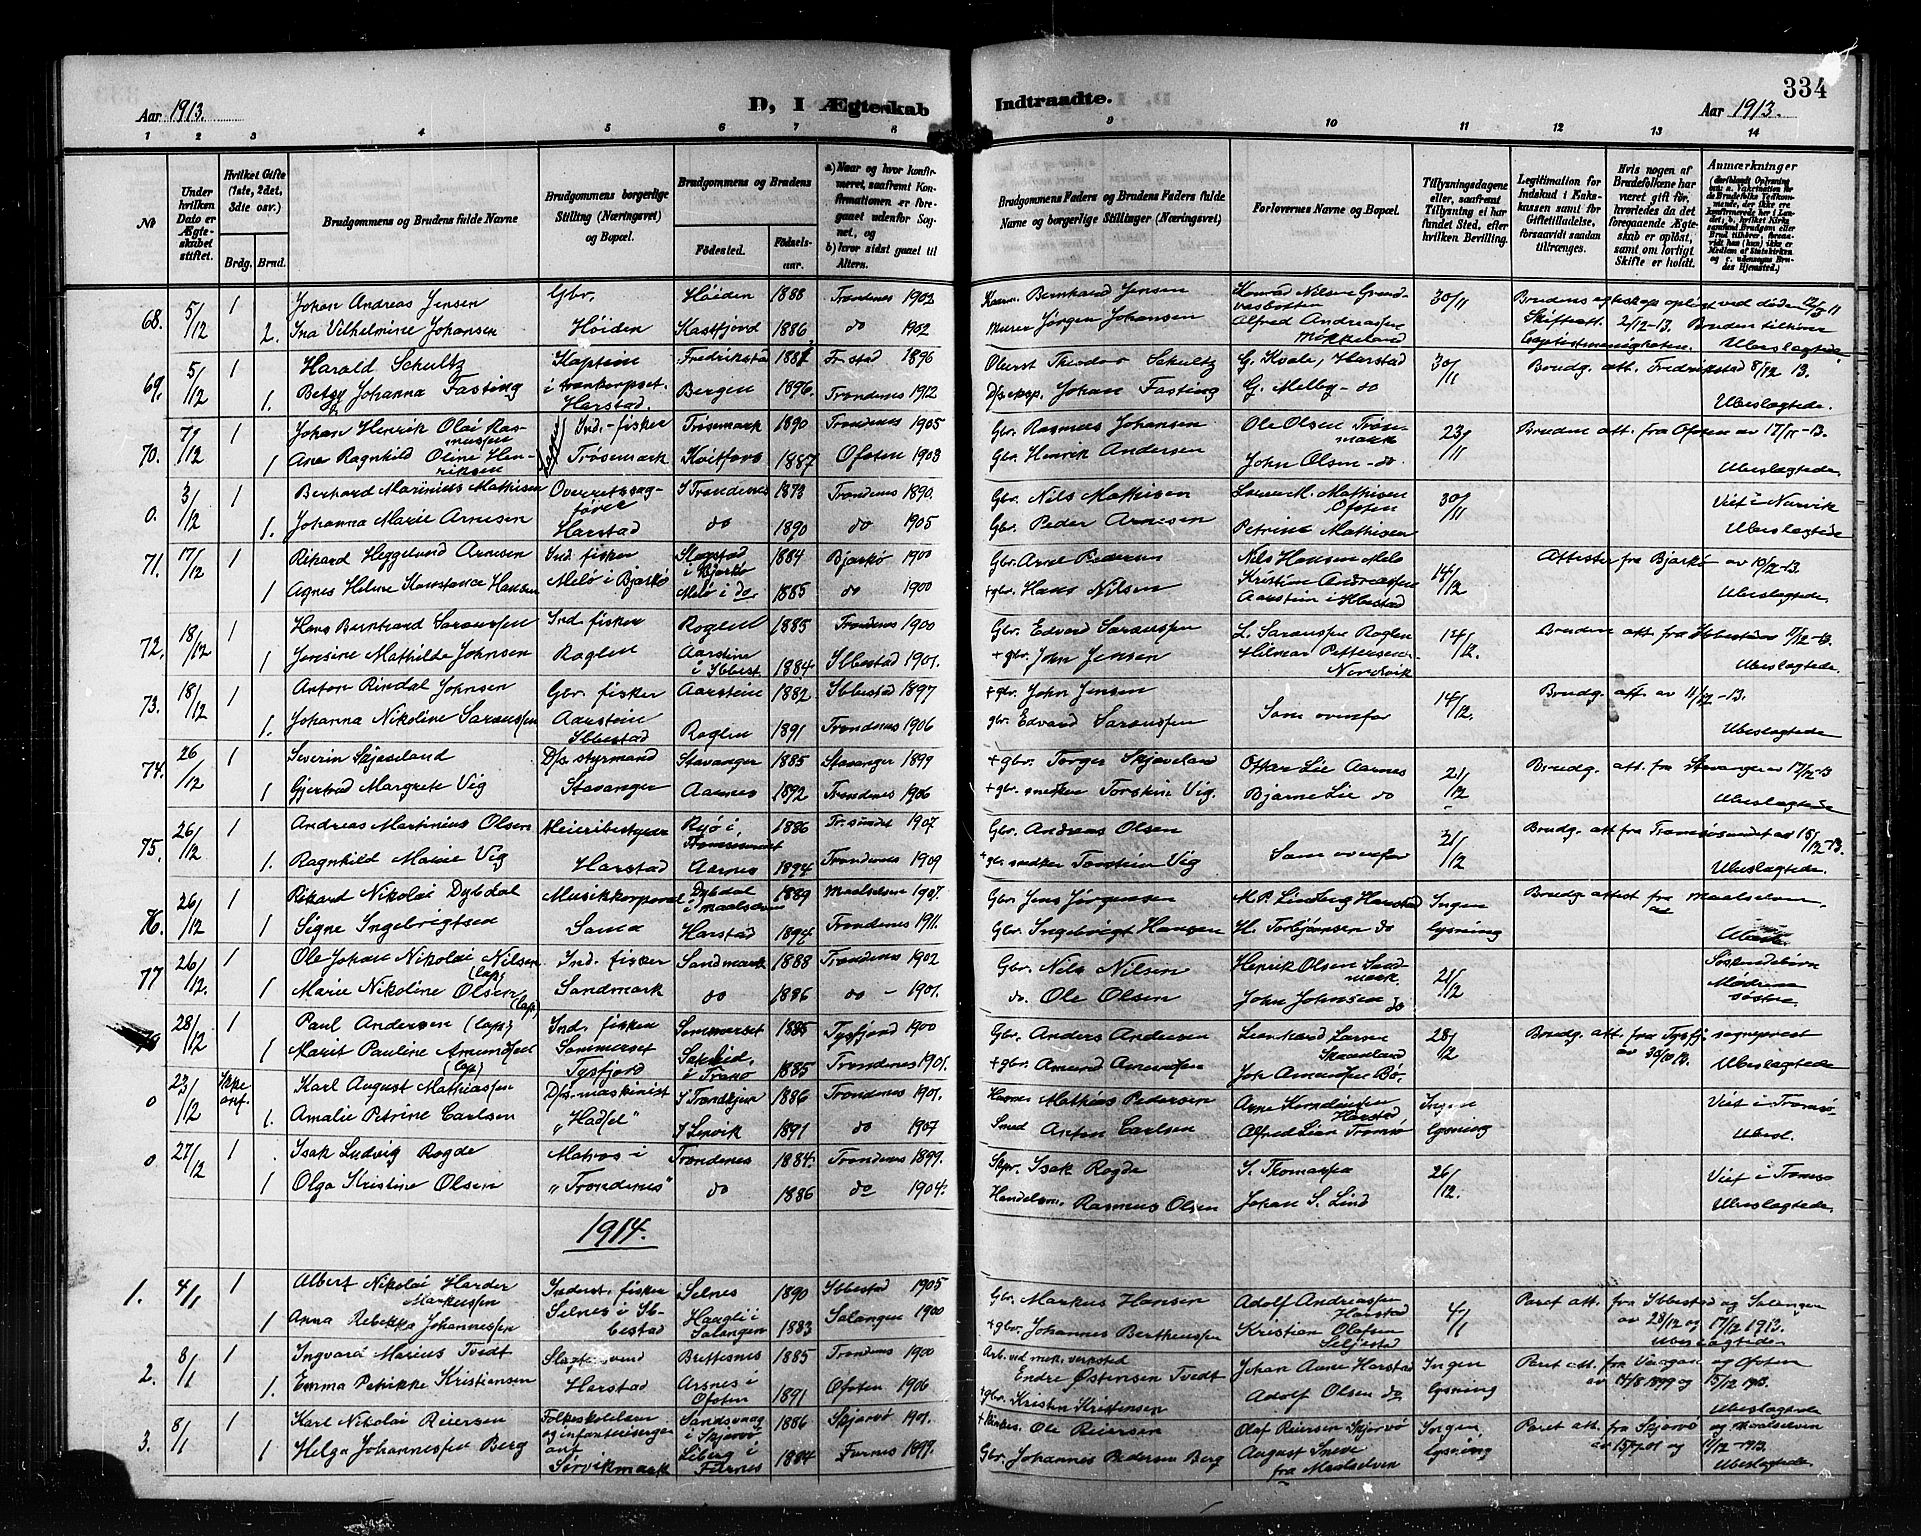 334
Aar 1913.
D, I Ægteskab
Indtraadte.
Aar 1913.
1 2 3 4 5 6 7 8 9 10 11 12 13 14
№
Under hvilken Dato er Ægteskabet stiftet.
Hvilket Gifte (1ste, 2det, 3die osv.)
Brdg. Brud.
Brudgommens og Brudens fulde Navne
Brudgommens borgerlige Stilling (Næringsvei) og Bopæl.
Brudgommens og Brudens
Fødested.
Fødselsaar.
a) Naar og hvor konfirmeret, saafremt Konfirmationen er foregaaet udenfor Sognet, og
b) hvor sidst gaaet til Altern.
Brudgommens Faders og Brudens Faders fulde Navne og borgerlige Stillinger (Næringsvei)
Forlovernes Navne og Bopæl.
Tillysningsdagene eller, saafremt Tillysning ei har fundet Sted, efter hvilken Bevilling.
Legitimation for Indskud i Enkekassen samt for Giftetilladelse, forsaavidt saadan tiltrænges.
Hvis nogen af Brudefolkene har været gift før, hvorledes da det foregaaende Ægteskab er opløst, samt om lovligt Skifte er holdt.
Anmærkninger
68. 5/12 1 Johan Andreas Jensen Gbr. Høiden 1888 Trondenes 1903 Bernhard Jensen Konrad Nilsen 30/11 Brudens egteskap opløst ved døden
2. Ina Vilhelmine Johansen Høiden Kastfjord 1886 do 1902 Murer Jørgen Johansen Alfred Andreassen Skifteatt. 2/12-13. Bruden tilhører
Baptistmenigheten. Ubeslægtede.
69. 5/12 1 Harald Schultz Kaptein Fredrikstad Fr.stad 1896 Oberst Theodor Schultz G. Kvale, Harstad 30/11 Brudg. att. Fredrikstad 8/12 13.
1. Betzy Johanna Fasting i trænkorpset. Harstad. Bergen 1896 Trondenes 1912 Johan Fasting G. Melby - do Ubeslægtede.
70. 7/12 1 Johan Henrik Olai Rasmussen Ind.-fisker Trøsemark 1890 Trondenes 1905 Gbr. Rasmus Johansen Ole Olsen Trøsemark 23/11 Brudens att. fra Ofoten av 17/11-13.
1 Ane Ragnhild Oline Henriksen Trøsemark 1887 Ofoten 1903 Gbr. Henrik Andersen John Olsen - do Ubeslægtede.
0. 3/12 1 Berhard Marinius Mathisen Overretssagfører I Trondenes 1873 Trondenes 1890. Gbr. Nils Mathisen M. Mathisen Ofoten 30/11 Viet i Narvik
1. Johanna Marie Arnesen Harstad do 1890 do 1905 Gbr. Peder Arnesen Petrine Mathisen Ubeslægtede
71. 17/12 1 Rikard Heggelund Arnesen Ind. fisker i Bjarkø 1884 Bjarkø 1900 Gbr. Arne Pedersen Nils Hansen Melø 14/12 Attester fra Bjarkø av 10/12-13.
1 Agnes Helene Konstance Hansen Melø i Bjarkø Melø i do 1885 do 1900 +gbr. Hans Nilsen Kristine Andreassen Aarstein i Ibestad Ubeslægtede.
72. 18/12 1 Hans Berntrand Saraussen Ind. fisker Roglen 1885 Trondenes 1900 Gbr. Edvard Saraussen L. Saraussen Roglen 14/12. Brudens att. fra
1 Jensine Mathilde Johnsen Roglen Aarstine i Ibbest. 1884 Ibbestad 1901. +gbr. John Jensen Hilmar Pettersen Nordvik Ubeslægtede.
73. 18/12 1 Anton Rindal Johnsen Gbr. fisker Aarstein 1882 Ibbestad 1897 +gbr. John Jensen 14/12. Brudg. att. av 11/12-13.
1. Johanna Nikoline Saraussen Aarstein Ibbestad Roglen 1891 Trondenes 1906 gbr. Edvard Saraussen Som ovenfor Ubeslægtede
74. 26/12 1 Severin Skjæveland D/s. styrmand Stavanger 1885 Stavanger 1899 +gbr. Torger Skjæveland Ottar Lie Aarnes 21/12 Brudg. att. fra Stavanger av 17/12-13
1 Gjertrud Margrete Vig Stavanger Aarnes 1892 Trondenes 1906 +gbr. snekker Torstein Vig. Bjarne Lie do Ubeslægtede
75. 26/12 1 Andreas Martinius Olsen Meieribestyrer Ryø i Tromsøsundet 1886 Tr.sundet 1907 Gbr. Andreas Olsen 21/12 Brudg. att fra Tromsøsundet av 15/12-13.
1. Ragnhild Marie Vig Harstad Aarnes 1894 Trondenes 1909 +gbr snekker Torstein Vig Som ovenfor Ubeslægtede.
76. 26/12 1 Rikard Nikolai Dybdal Musikkorporal Dybdal i Maalselven 1889 Maalselven 1907. Gbr. Jens Jørgensen M. P. Lindberg Harstad Ingen Brudg. attest fra Maalselven.
1 Signe Ingebrigtsen Sama Harstad 1894 Trondenes 1911. Gbr. Ingebrigt Hansen H. Torbjørnsen do lysning
77 26/12. 1 Ole Johan Nikolai Nilsen (lap) Ind. fisker Sandmark 1888 Trondenes 1902 Gbr. Nils Nilsen Henrik Olsen Sandmark 21/12 Søskendebørn
1 Marie Nikoline Olsen (lap) Sandmark do 1886 do - 1901. do. Ole Olsen John Johnsen do Mødrene søstre.
28/12 1 Paul Andersen (lap) Ind. fisker Sommerset 1885 Tysfjord 1900 Gbr. Anders Andersen Skaanland 28/12 Brudg. att. fra Tysfj. sogneprest av 30/10 13.
1 Marit Pauline Amundsen (lap) Sommerset Tysfjord i Tranø 1885 Trondenes 1901. +gbr. Amund Amundsen Joh. Amundsen Bø. Ubeslægtede
0 23/12 Ikke anf. Karl August Mathiassen D/s. maskinist I Trondhjem 1886 Trondenes 1901. Mathias Pedersen Arne Harstad Ingen Viet i Tromsø
1. Amalie Petrine Carlsen "Hadsel" I Lervik 1891 do 1907 Smed Anton Carlsen Alfred Lian Tromsø lysning Ubesl.
0 27/12 1 Isak Ludvig Rogde Matros i Trondenes 1884. Trondenes 1899. Skpr. Isak Rogde S. Thomassen 26/12. Viet i Tromsø
1 Olga Kristine Olsen "Trondenes" do 1886 do 1904. Handelsm. Rasmus Olsen Johan S. Lind Ubeslægtede.
1914.
1. 4/1 1 Albert Nikolai Harder Markussen Inderst. fisker Selnes 1890 Ibbestad 1905 Gbr. Markus Hansen Adolf Andreassen Harstad 4/1 Paret att. fra Ibbestad og Salangen
1 Anna Rebekka Johannessen Selnes i Ibbestad Haagli i Salangen 1883 Salangen 1900 +gbr. Johannes Bertheussen Kristian Olafsen Seljestad av 28/12 og 17/12 1913. Ubeslægtede
2. 8/1 1 Ingvard Marius Tvedt Slagtersvend Brettesnes 1885 Trondenes 1900 Arb. ved mek. verksted Endre Østensen Tvedt Johan Aune Harstad Ingen Paret att. fra Vaagan og Ofoten
1. Emma Petrikke Kristiansen Harstad Arsnes i Ofoten 1891 Ofoten 1906 +gbr. Kristen Kristensen Adolf Olsen do lysning av 14/8 1899 og 15/12 1913. Ubeslægtede
3. 8/1 1 Karl Nikolai Reiersen Folkeskolelærer og infanterisergeant i Skjervø 1886 Skjervø 1901. Ole Reiersen Olaf Reiersen Skjervø Ingen Paret att. fra Skjervø og Maalselven
1 Helga Johannessen Berg Sørvikmark Liberg i Furnes 1884 Furnes 1899. Gbr. Johannes Pedersen Berg August fra Maalselven lysning av 15/7 01 og 1913. Ubeslægtede